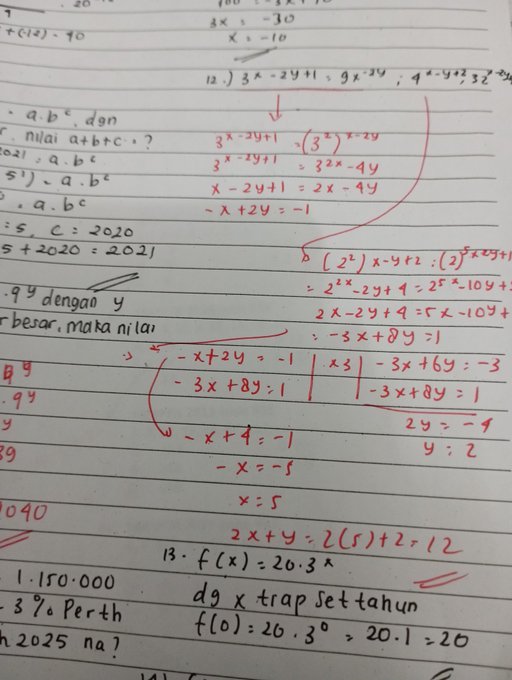 20
+(-12) = 90
3x = -30
x = -10
12.) 3^x-2y+1 = 9x^-2y ; 4^x-y+2 = 32^x-2y
= a.b^c, dgn
nilai a+b+c = ?
2021 = a.b^c
5') = a.b^c
= a.b^c
= 5, c = 2020
5 + 2020 = 2021
3^x-2y+1 = (3^2)^x-2y
3^x-2y+1 = 3^2x-4y
x - 2y+1 = 2x - 4y
-x+2y = -1
(2^2) x-y+2 = (2)^5x2y+1
= 2^2x-2y+4 = 2^5x-10y+
2x-2y+4 = 5x-10y+
= -3x+8y = 1
.9^y dengan y
r besar, maka nilai
-x+2y = -1 | x3 | -3x+6y = -3
-3x+8y = 1 | | -3x+8y = 1
2y = -4
y = 2
.9^y
y
39
-x+4 = -1
-x = -5
x = 5
1040
2x+y = 2(5)+2 = 12
13. f(x) = 20.3^x
dg x trap set tahun
f(0) = 20.3^0 = 20.1 = 20
1.150.000
- 3% Perth
h 2025 na?